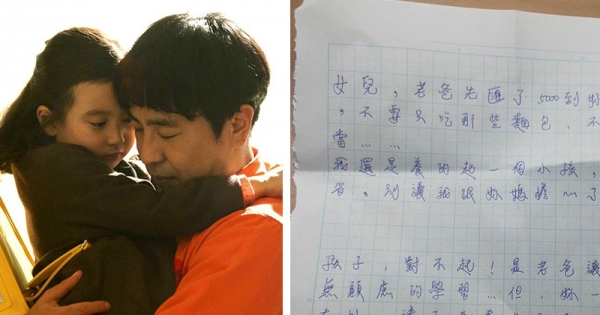 女兒，老爸先匯了5000到妳
，不要只吃那些麵包、不
當……
我還是養的起一個小孩，
，別讓我跟妳媽擔心了
孩子，對不起！是老爸讓
無顧慮的學習…但，妳一